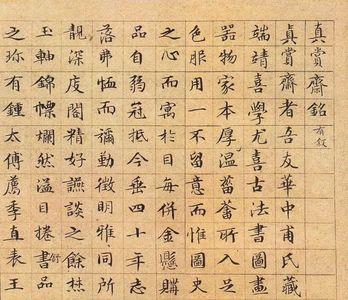 真賞齋銘有叙
真賞齋者吾友華中甫氏藏
端靖喜學尤喜古法書圖畫
器物家本厚溫菑畬所入足
色服用一不留意而惟圖史
之心而寓於目每併金懸購
品自弱冠抵今垂四十年志
落弗恤而彌勤徵明雅同所
靚深庋閣精好讌談之餘焚
玉軸錦幖爛然溢目捲舒書品
之珍有鍾太傅薦季直表王